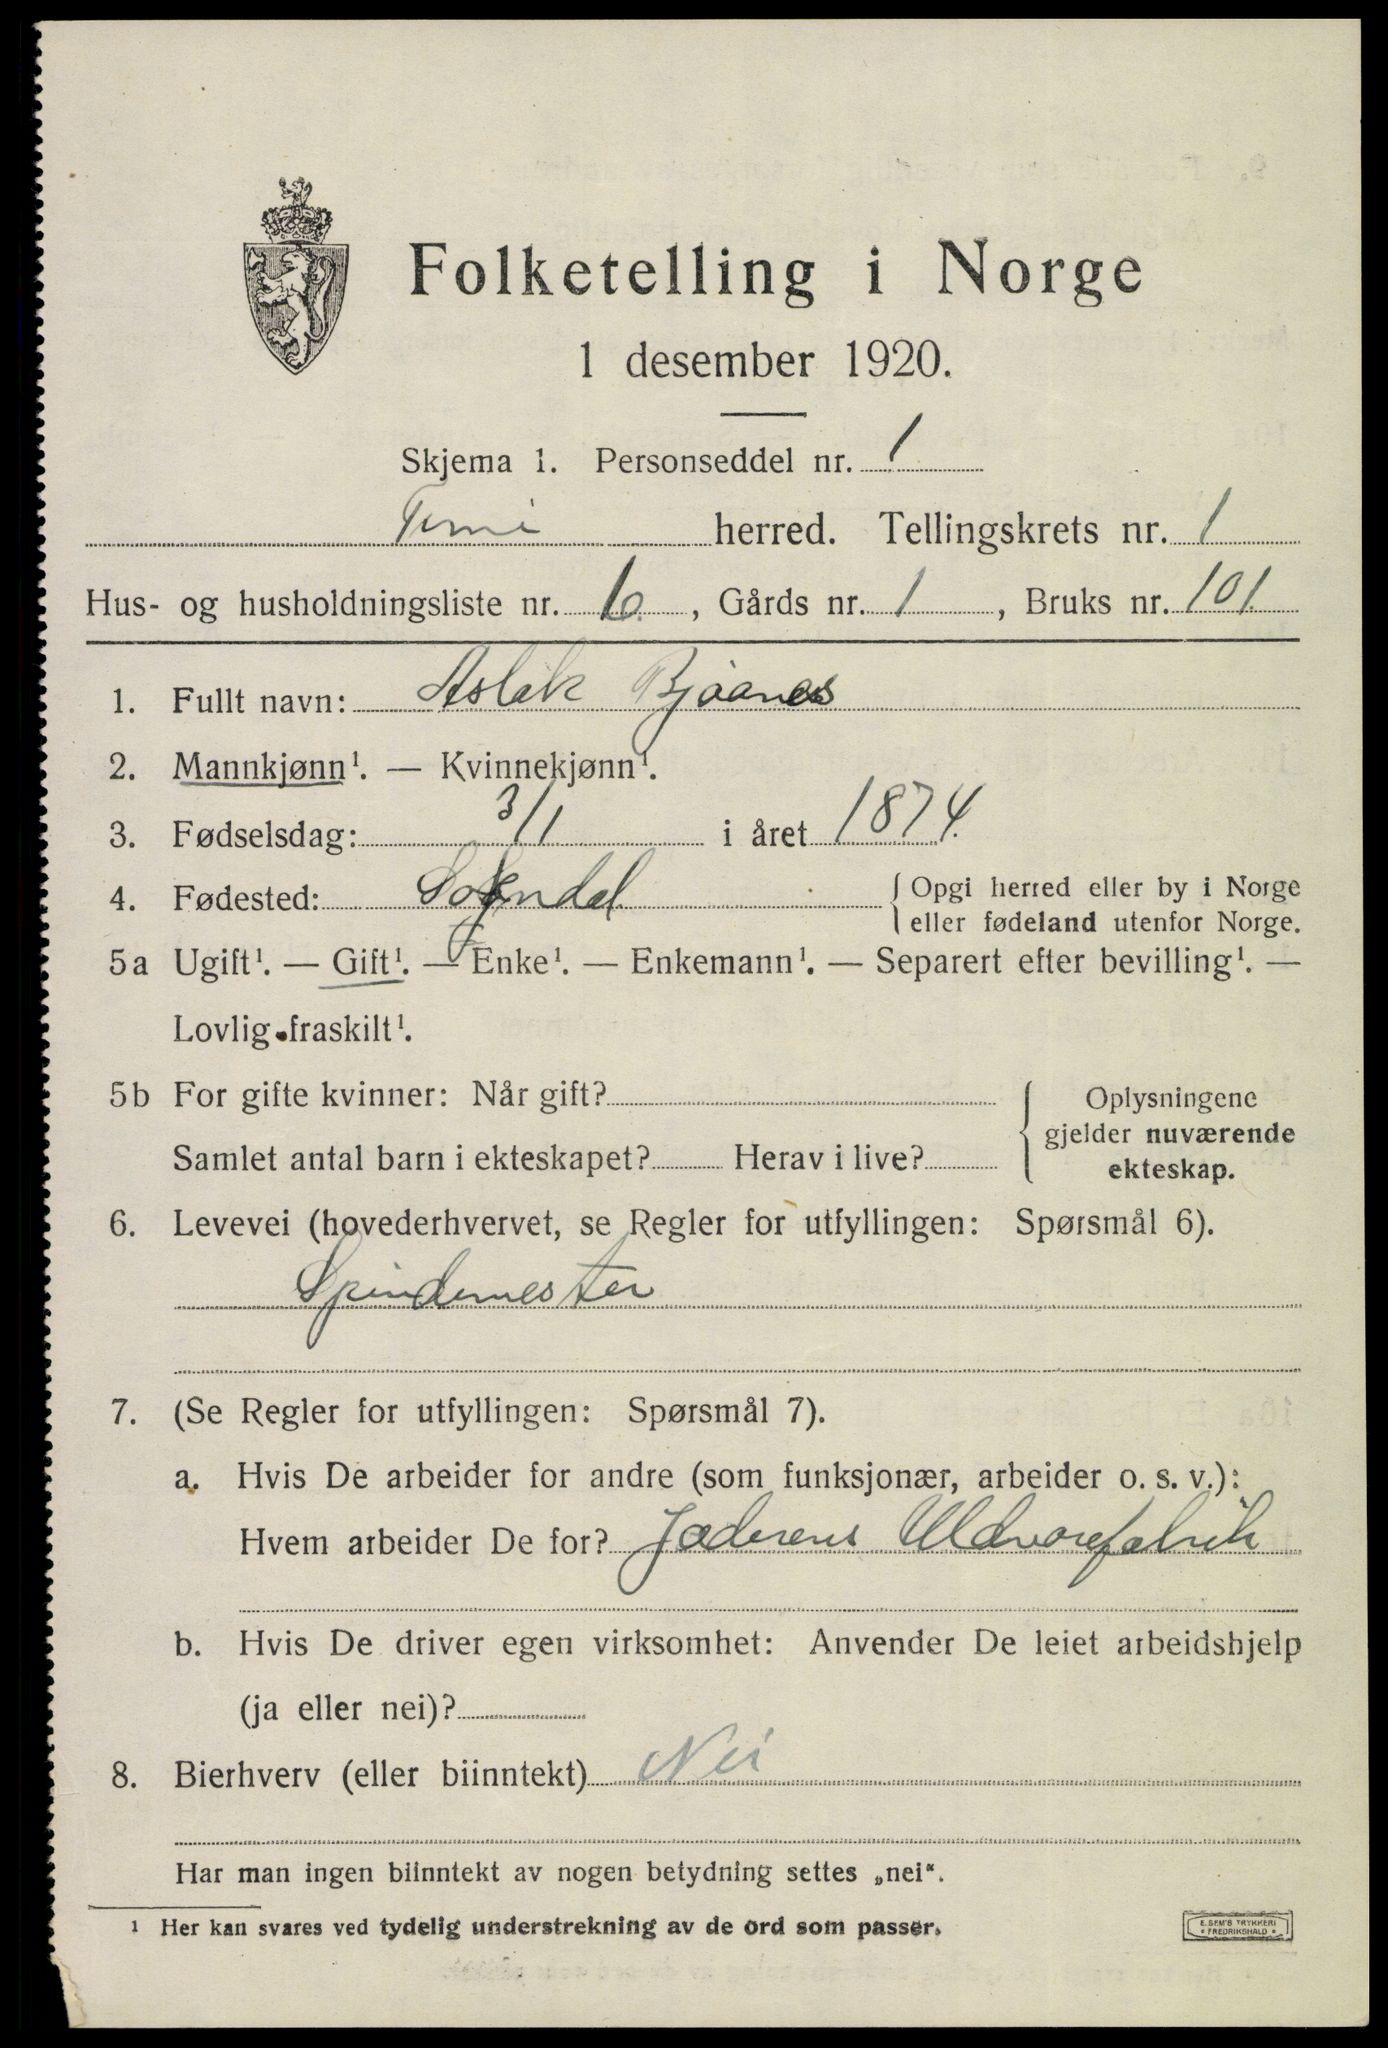 Folketelling i Norge
1 desember 1920.
Skjema 1. Personseddel nr. 1
Time herred. Tellingskrets nr. 1
Hus- og husholdningsliste nr. 6, Gårds nr. 1, Bruks nr. 101.
1. Fullt navn: Aslak Bjåanes
2. Mannkjønn¹. — Kvinnekjønn¹.
3. Fødselsdag: 3/1 i året 1874.
4. Fødested: Sogndal { Opgi herred eller by i Norge
eller fødeland utenfor Norge.
5a Ugift¹. — Gift¹. — Enke¹. — Enkemann¹. — Separert efter bevilling¹. —
Lovlig fraskilt¹.
5b For gifte kvinner: Når gift?
Samlet antal barn i ekteskapet? Herav i live?
{ Oplysningene
gjelder nuværende
ekteskap.
6. Levevei (hovederhvervet, se Regler for utfyllingen: Spørsmål 6).
Spindemester
7. (Se Regler for utfyllingen: Spørsmål 7).
a. Hvis De arbeider for andre (som funksjonær, arbeider o. s. v.):
Hvem arbeider De for? Jæderens Uldvarefabrik
b. Hvis De driver egen virksomhet: Anvender De leiet arbeidshjelp
(ja eller nei)?
8. Bierhverv (eller biinntekt) Nei
Har man ingen biinntekt av nogen betydning settes „nei“.
¹ Her kan svares ved tydelig understrekning av de ord som passer.
E. SEM'S TRYKKERI
* FREDRIKSHALD *